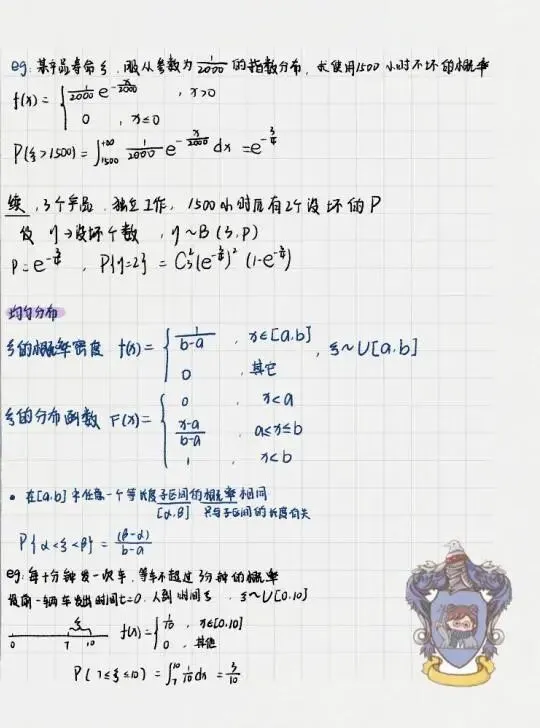 eg: 某产品寿命ξ,服从参数为 1/2000 的指数分布,求使用1500小时不坏的概率
f(x) = { 1/2000 e^(-x/2000) , x>0
0 , x≤0
P(ξ>1500) = ∫_1500^+∞ 1/2000 e^(-x/2000) dx = e^(-3/4)
续,3个产品,独立工作,1500小时后有2个没坏的P
设 η→没坏个数 , η~B(3,P)
P=e^(-3/4) , P{η=2} = C_3^2 (e^(-3/4))^2 (1-e^(-3/4))
均匀分布
ξ的概率密度 f(x) = { 1/(b-a) , x∈[a,b] , ξ~U[a,b]
0 , 其它
ξ的分布函数 F(x) = { 0 , x<a
(x-a)/(b-a) , a≤x≤b
1 , x<b
• 在[a,b]中任意一个等长度子区间的概率相同
[α,β] 只与子区间的长度有关
P{α<ξ<β} = (β-α)/(b-a)
eg: 每十分钟发一次车,等车不超过3分钟的概率
设前一辆车发出时间t=0,人到时间ξ , ξ~U[0,10]
0 7 10 f(x) = { 1/10 , x∈[0,10]
0 , 其他
P(7≤ξ≤10) = ∫_7^10 1/10 dx = 3/10